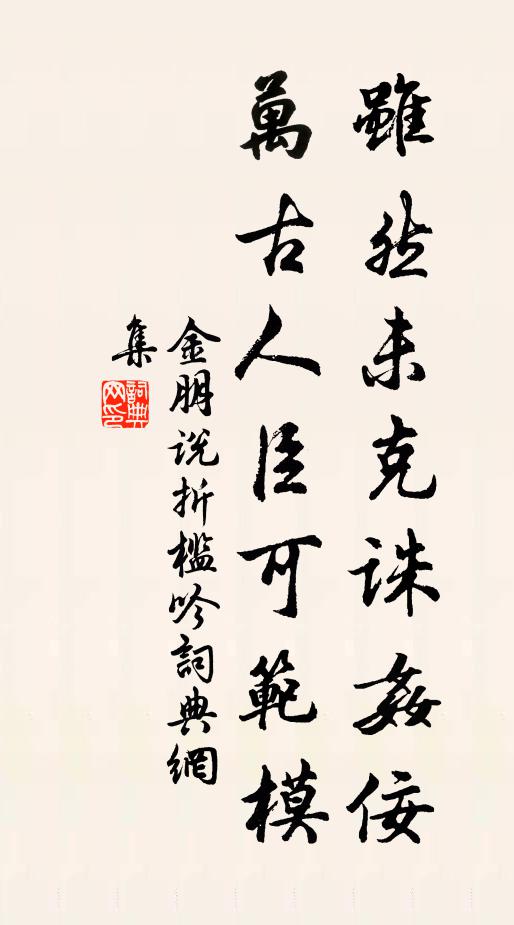 雖然未克誅姦佞
萬古人臣可範模
金朋说折檻吟詞典網
集
詞典
网印